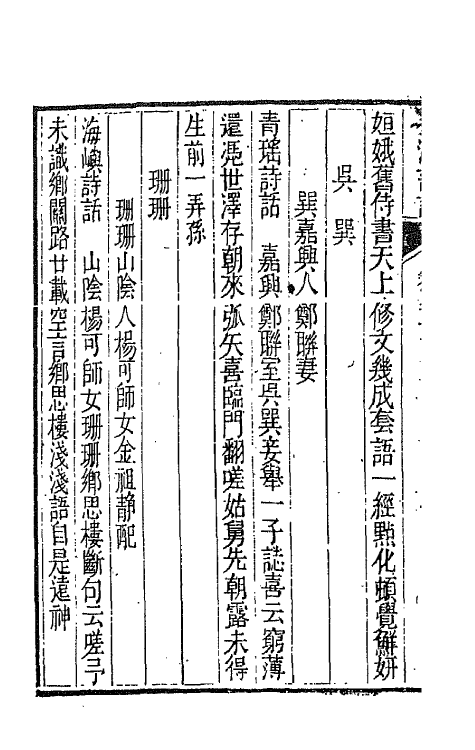 姮娥舊侍書天上修文幾成套語一經點化頓覺鮮妍
吳巽
巽嘉興人鄭聯妻
青瑤詩話　嘉興鄭聯室吳巽妾舉一子誌喜云窮薄
還凴世澤存朝來弧矢喜臨門翻嗟姑舅先朝露未得
生前一弄孫
珊珊
珊珊山陰人楊可師女金祖靜配
海嶼詩話　山陰楊可師女珊珊鄉思樓斷句云嗟予
未識鄉關路廿載空言鄉思樓淺淺語自是遠神